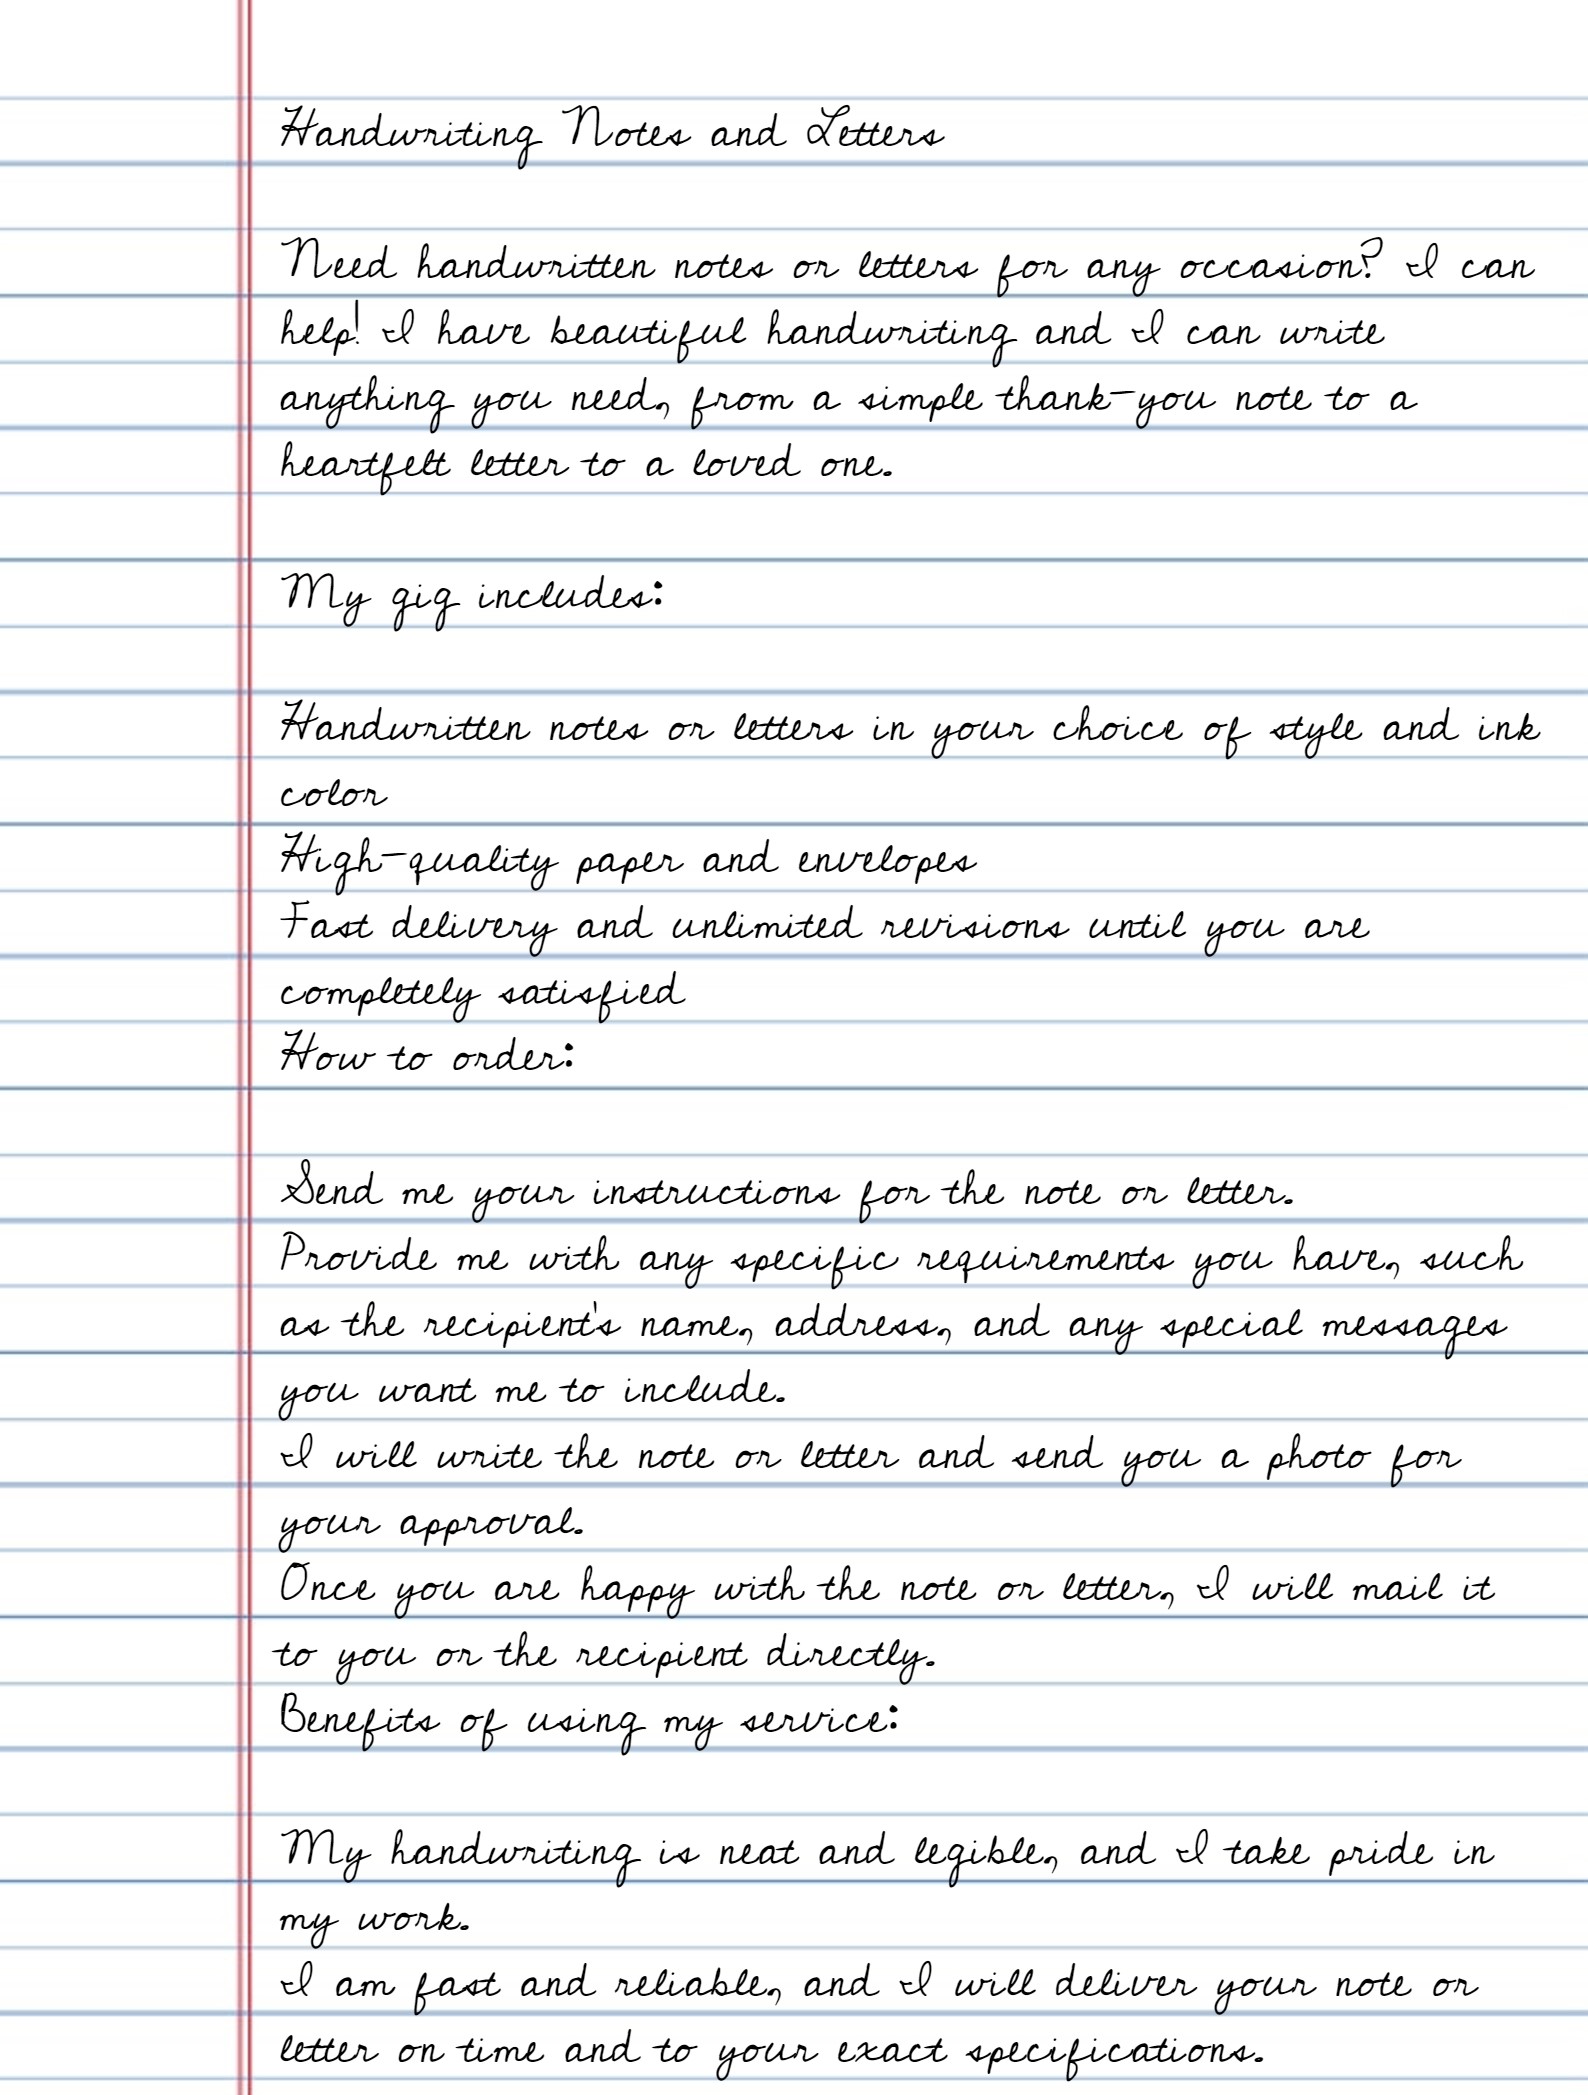 Handwriting Notes and Letters
Need handwritten notes or letters for any occasion? I can
help! I have beautiful handwriting and I can write
anything you need, from a simple thank-you note to a
heartfelt letter to a loved one.
My gig includes:
Handwritten notes or letters in your choice of style and ink
color
High-quality paper and envelopes
Fast delivery and unlimited revisions until you are
completely satisfied
How to order:
Send me your instructions for the note or letter.
Provide me with any specific requirements you have, such
as the recipient's name, address, and any special messages
you want me to include.
I will write the note or letter and send you a photo for
your approval.
Once you are happy with the note or letter, I will mail it
to you or the recipient directly.
Benefits of using my service:
My handwriting is neat and legible, and I take pride in
my work.
I am fast and reliable, and I will deliver your note or
letter on time and to your exact specifications.